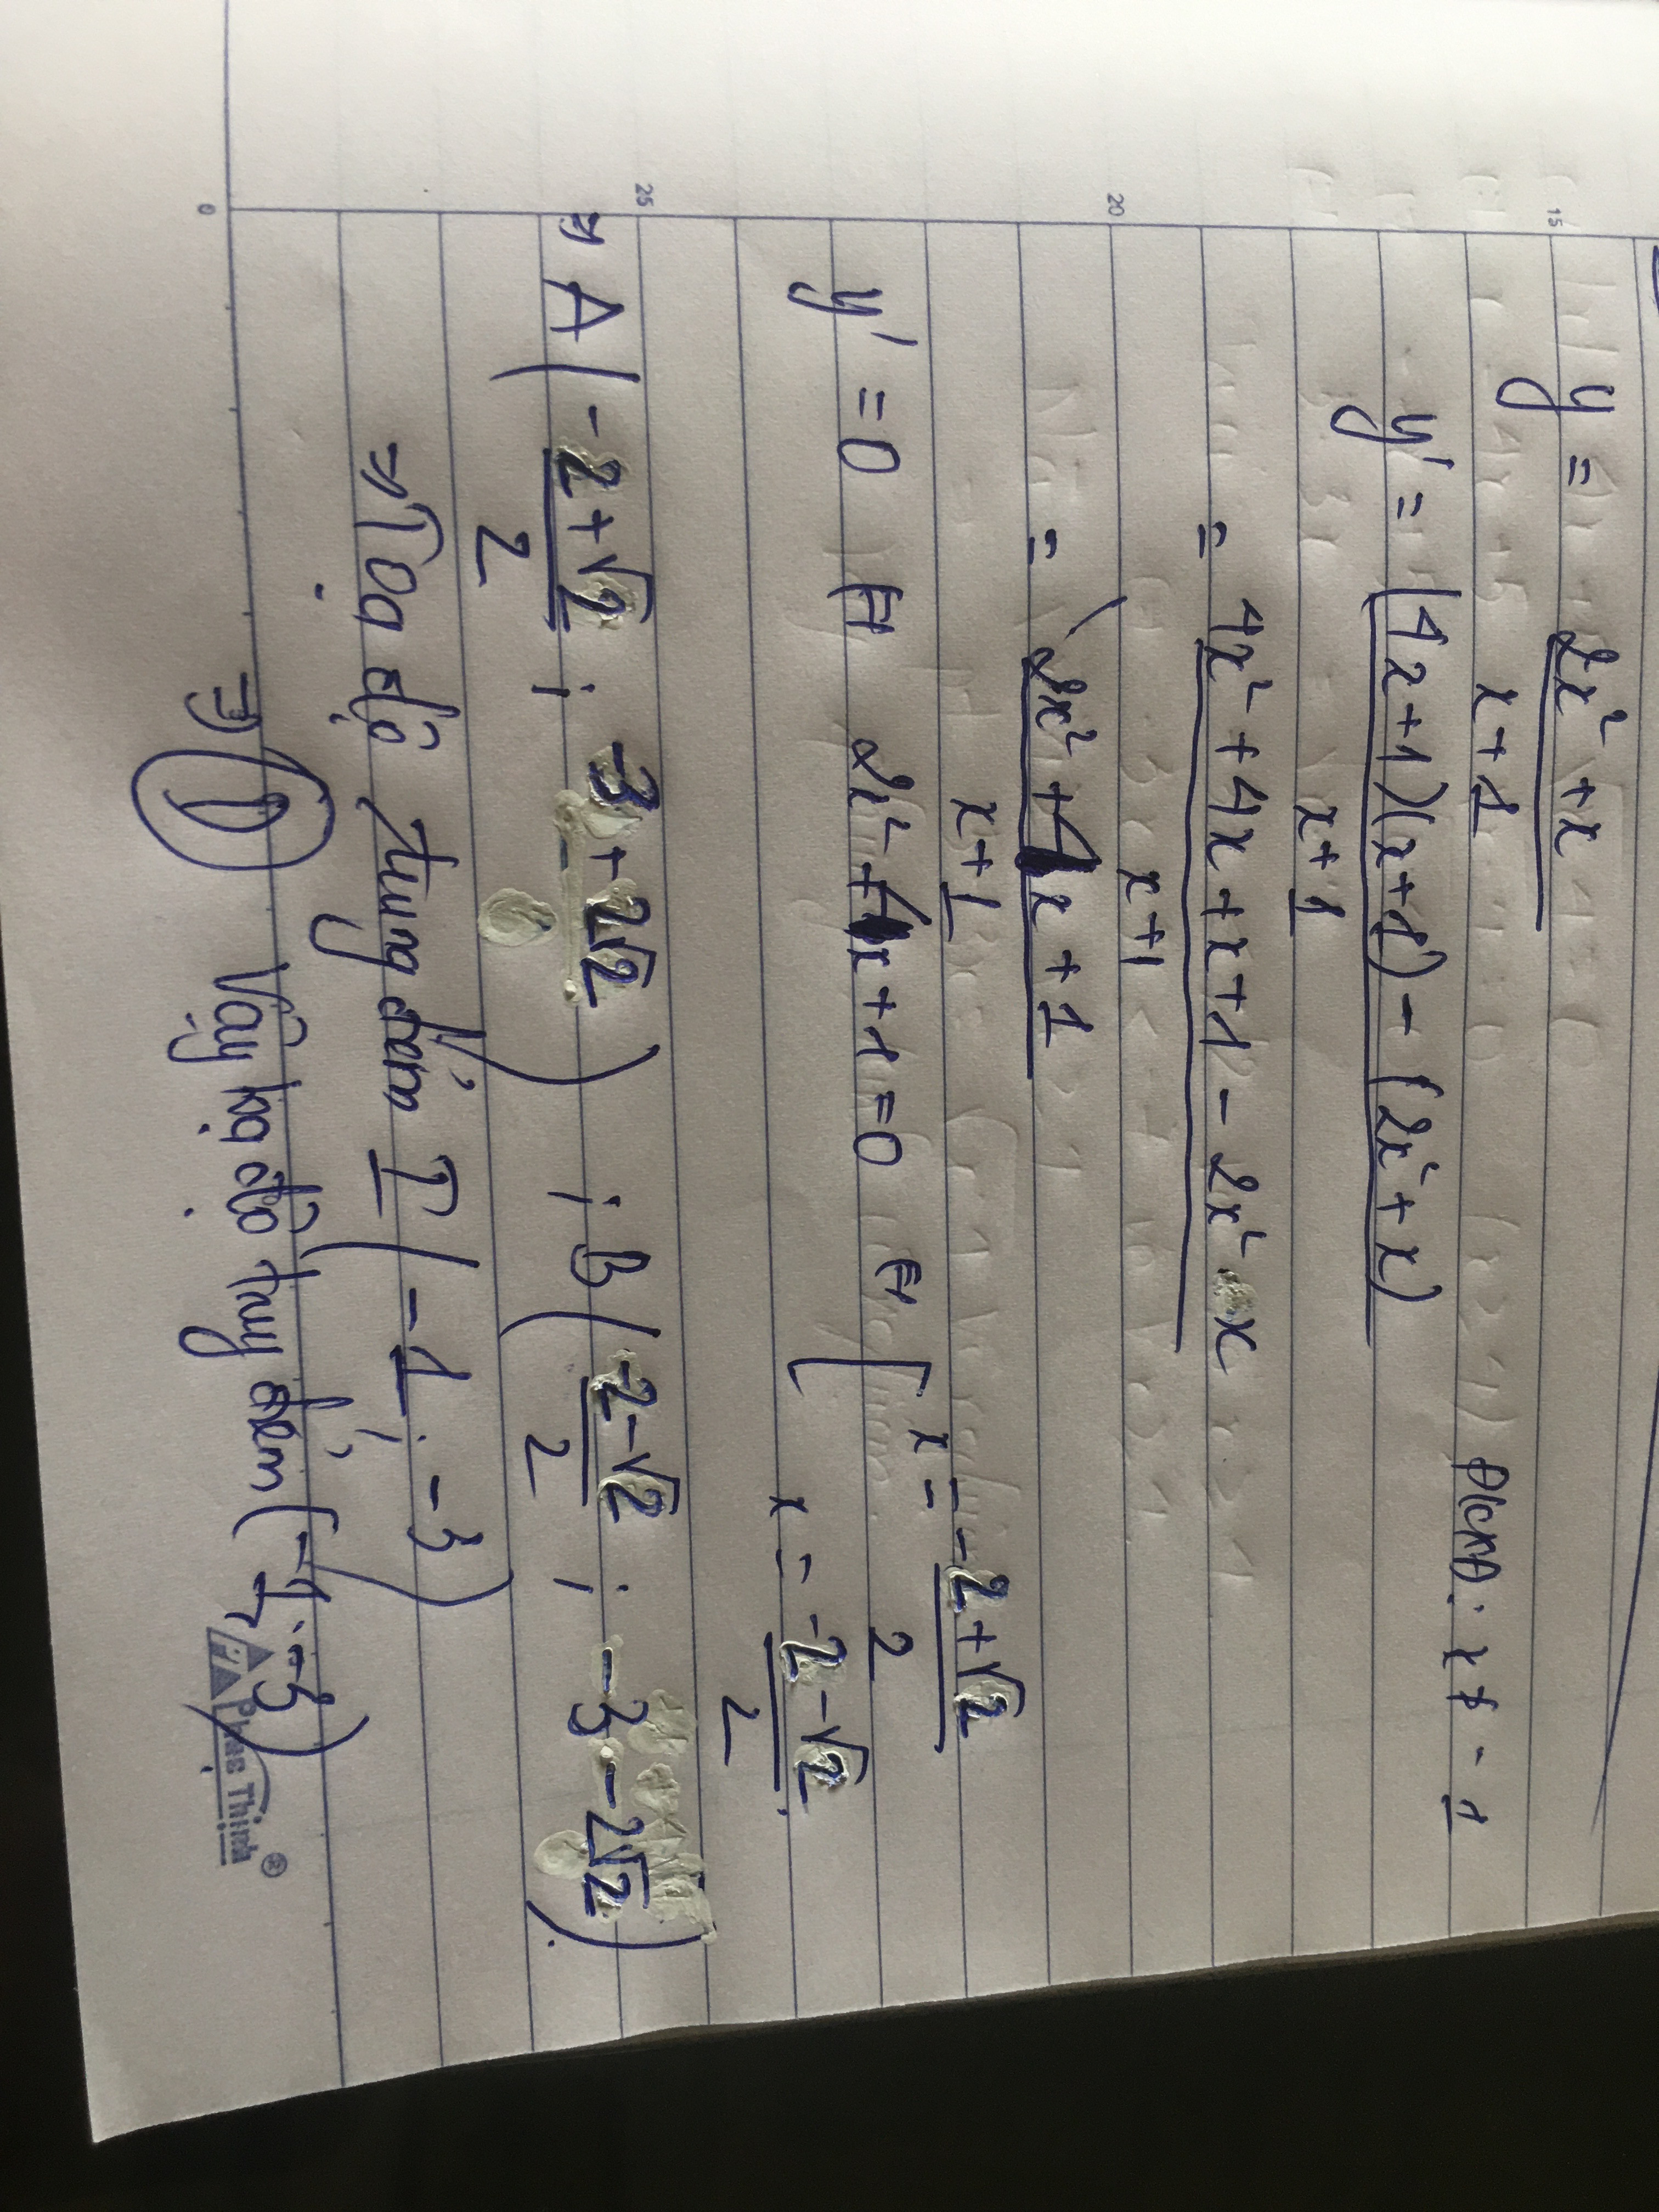 15
y = \frac{2x² + x}{x + 1} ĐKXĐ: x ≠ -1
y' = \frac{(4x+1)(x+1) - (2x²+x)}{x+1}
20
= \frac{4x² + 4x + x + 1 - 2x² - x}{x+1}
= \frac{2x² + 4x + 1}{x+1}
y' = 0 ⇔ 2x² + 4x + 1 = 0 ⇔ [ x = \frac{-2+√2}{2}
x = \frac{-2-√2}{2}
25
⇒ A ( \frac{-2+√2}{2} ; 3 + 2√2 ) ; B ( \frac{-2-√2}{2} ; -3 - 2√2 ).
⇒ Tọa độ trung điểm I ( -1 ; -3 )
0
⇒ D Vậy tọa độ trung điểm ( -1 ; -3 )
Phuc Thinh ®